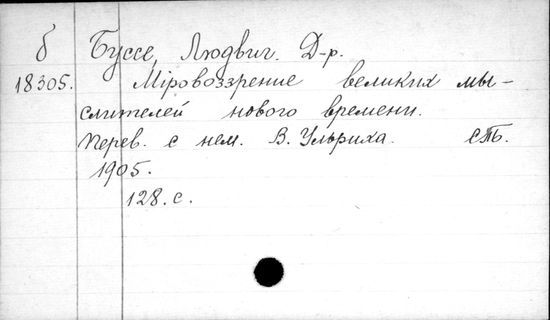 б Буссе, Людвиг. Д-р.
18305. Мiровоззрение великих мы-
слителей нового времени.
Перев. с нем. В. Ульриха. СПБ.
1905.
128. с.